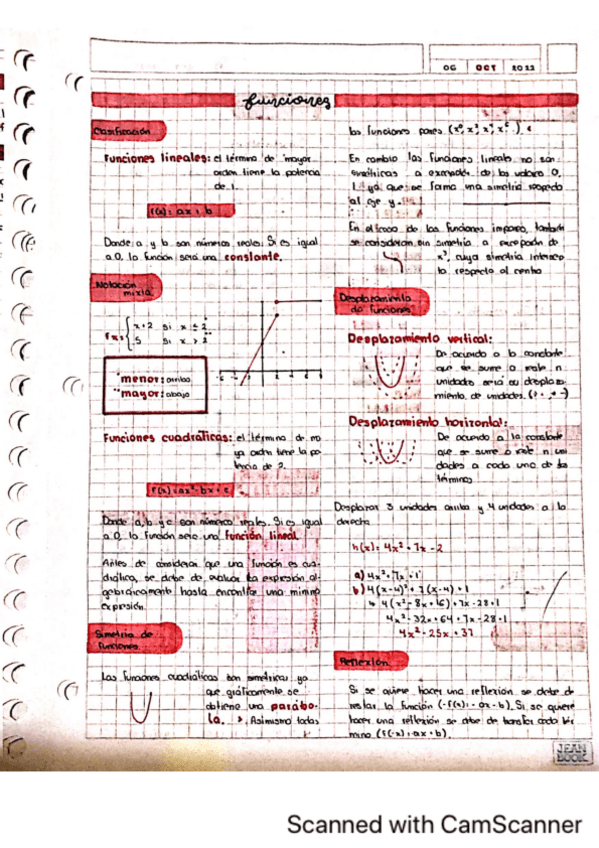 06 OCT 2022
funciones
Clasificación
Funciones lineales: el término de mayor
orden tiene la potencia
de 1.
f(x)= ax + b
Donde a y b son números reales. Si es igual
a 0, la función será una constante.
Notación
mixta
fx= { x+2 si x ≤ 2
5 si x > 2
"menor: arriba
"mayor: abajo
Funciones cuadráticas: el término de ma
yor orden tiene la po-
tencia de 2.
f(x)=ax² + bx + c
Donde a, b y c son números reales. Si es igual
a 0, la función será una función lineal.
Antes de considerar que una función es cua-
drática, se debe de evaluar la expresión al-
gebraicamente hasta encontrar una mínima
expresión.
Simetría de
funciones
Las funciones cuadráticas son simétricas ya
que gráficamente se
obtiene una parábo-
la. Asimismo todas
las funciones pares
En cambio las funciones lineales no son
simétricas a excepción de los valores 0,
1 ya que se forma una simetría respecto
al eje y.
En el caso de las funciones impares, también
se consideran sin simetría a excepción de
x³, cuya simetría
respecto al centro
Desplazamiento
de funciones
Desplazamiento vertical:
De acuerdo a la constante
que se sume o reste n
unidades será su desplaza-
miento de unidades.
Desplazamiento horizontal:
De acuerdo a la constante
que se sume o reste n uni
dades a cada uno de los
términos
Desplazar 3 unidades arriba y 4 unidades a la
derecha
h(x)= 4x² + 7x - 2
a) 4x² + 7x + 1
b) 4(x-4)² + 7(x-4) + 1
4(x² - 8x + 16) + 7x - 28 + 1
4x² - 32x + 64 + 7x - 28 + 1
4x² - 25x + 37
Reflexión
Si se quiere hacer una reflexión se debe de
restar la función (-f(x)= -ax - b). Si se quiere
hacer una reflexión se debe de cada tér
mino (f(-x)= ax + b).
JEAN
BOOK
Scanned with CamScanner